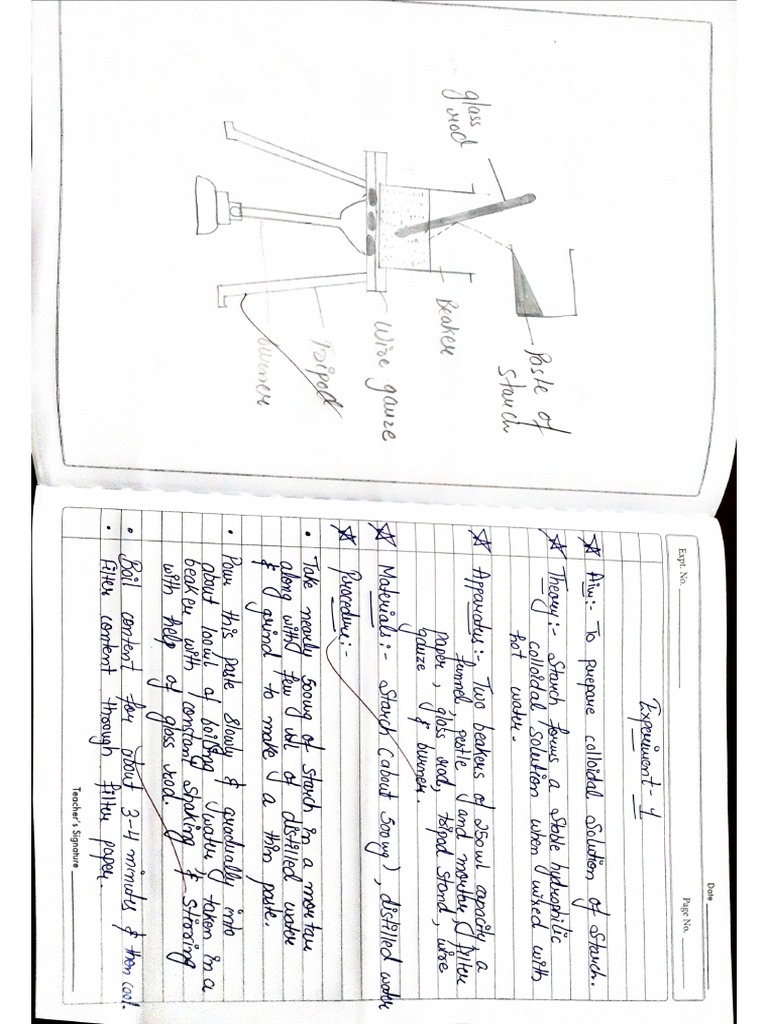 glass
rod
Paste of
Starch
Beaker
Wire gauze
Tripod
Burner
Date
Expt. No.
Page No.
Experiment - 1
☆ Aim:- To prepare colloidal Solution of Starch.
☆ Theory:- Starch forms a Stable hydrophilic
colloidal solution when mixed with
hot water.
☆ Apparatus:- Two beakers of 250ml capacity, a
funnel, pestle and mortar, filter
paper, glass rod, tripod stand, wire
gauze & burner.
☆ Materials:- Starch (about 500mg), distilled water
☆ Procedure:-
• Take nearly 500mg of Starch in a mortar
along with few ml of distilled water
& grind to make a thin paste.
• Pour this paste slowly & gradually into
about 100ml of boiling water taken in a
beaker with constant Shaking & Stirring
with help of glass rod.
• Boil content for about 3-4 minutes & then cool.
• Filter content through filter paper.
Teacher's Signature